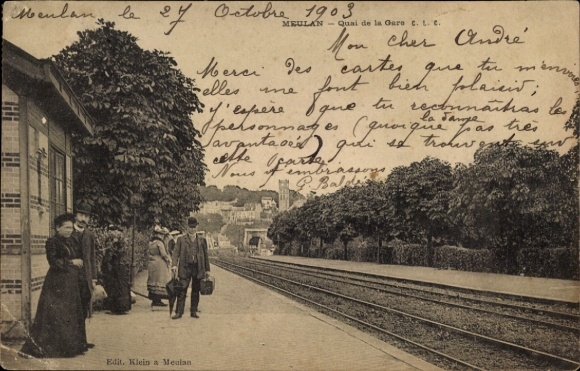 Meulan le 27 Octobre 1903
MEULAN – Quai de la Gare C. L. C.
Mon cher André
Merci des cartes que tu m'envoies
elles me font bien plaisir ;
j'espère que tu reconnaîtras les
personnages (quoique pas très
la dame
avantagés) qui se trouvent sur
cette carte.
Nous t'embrassons
Edit. Klein a Meulan